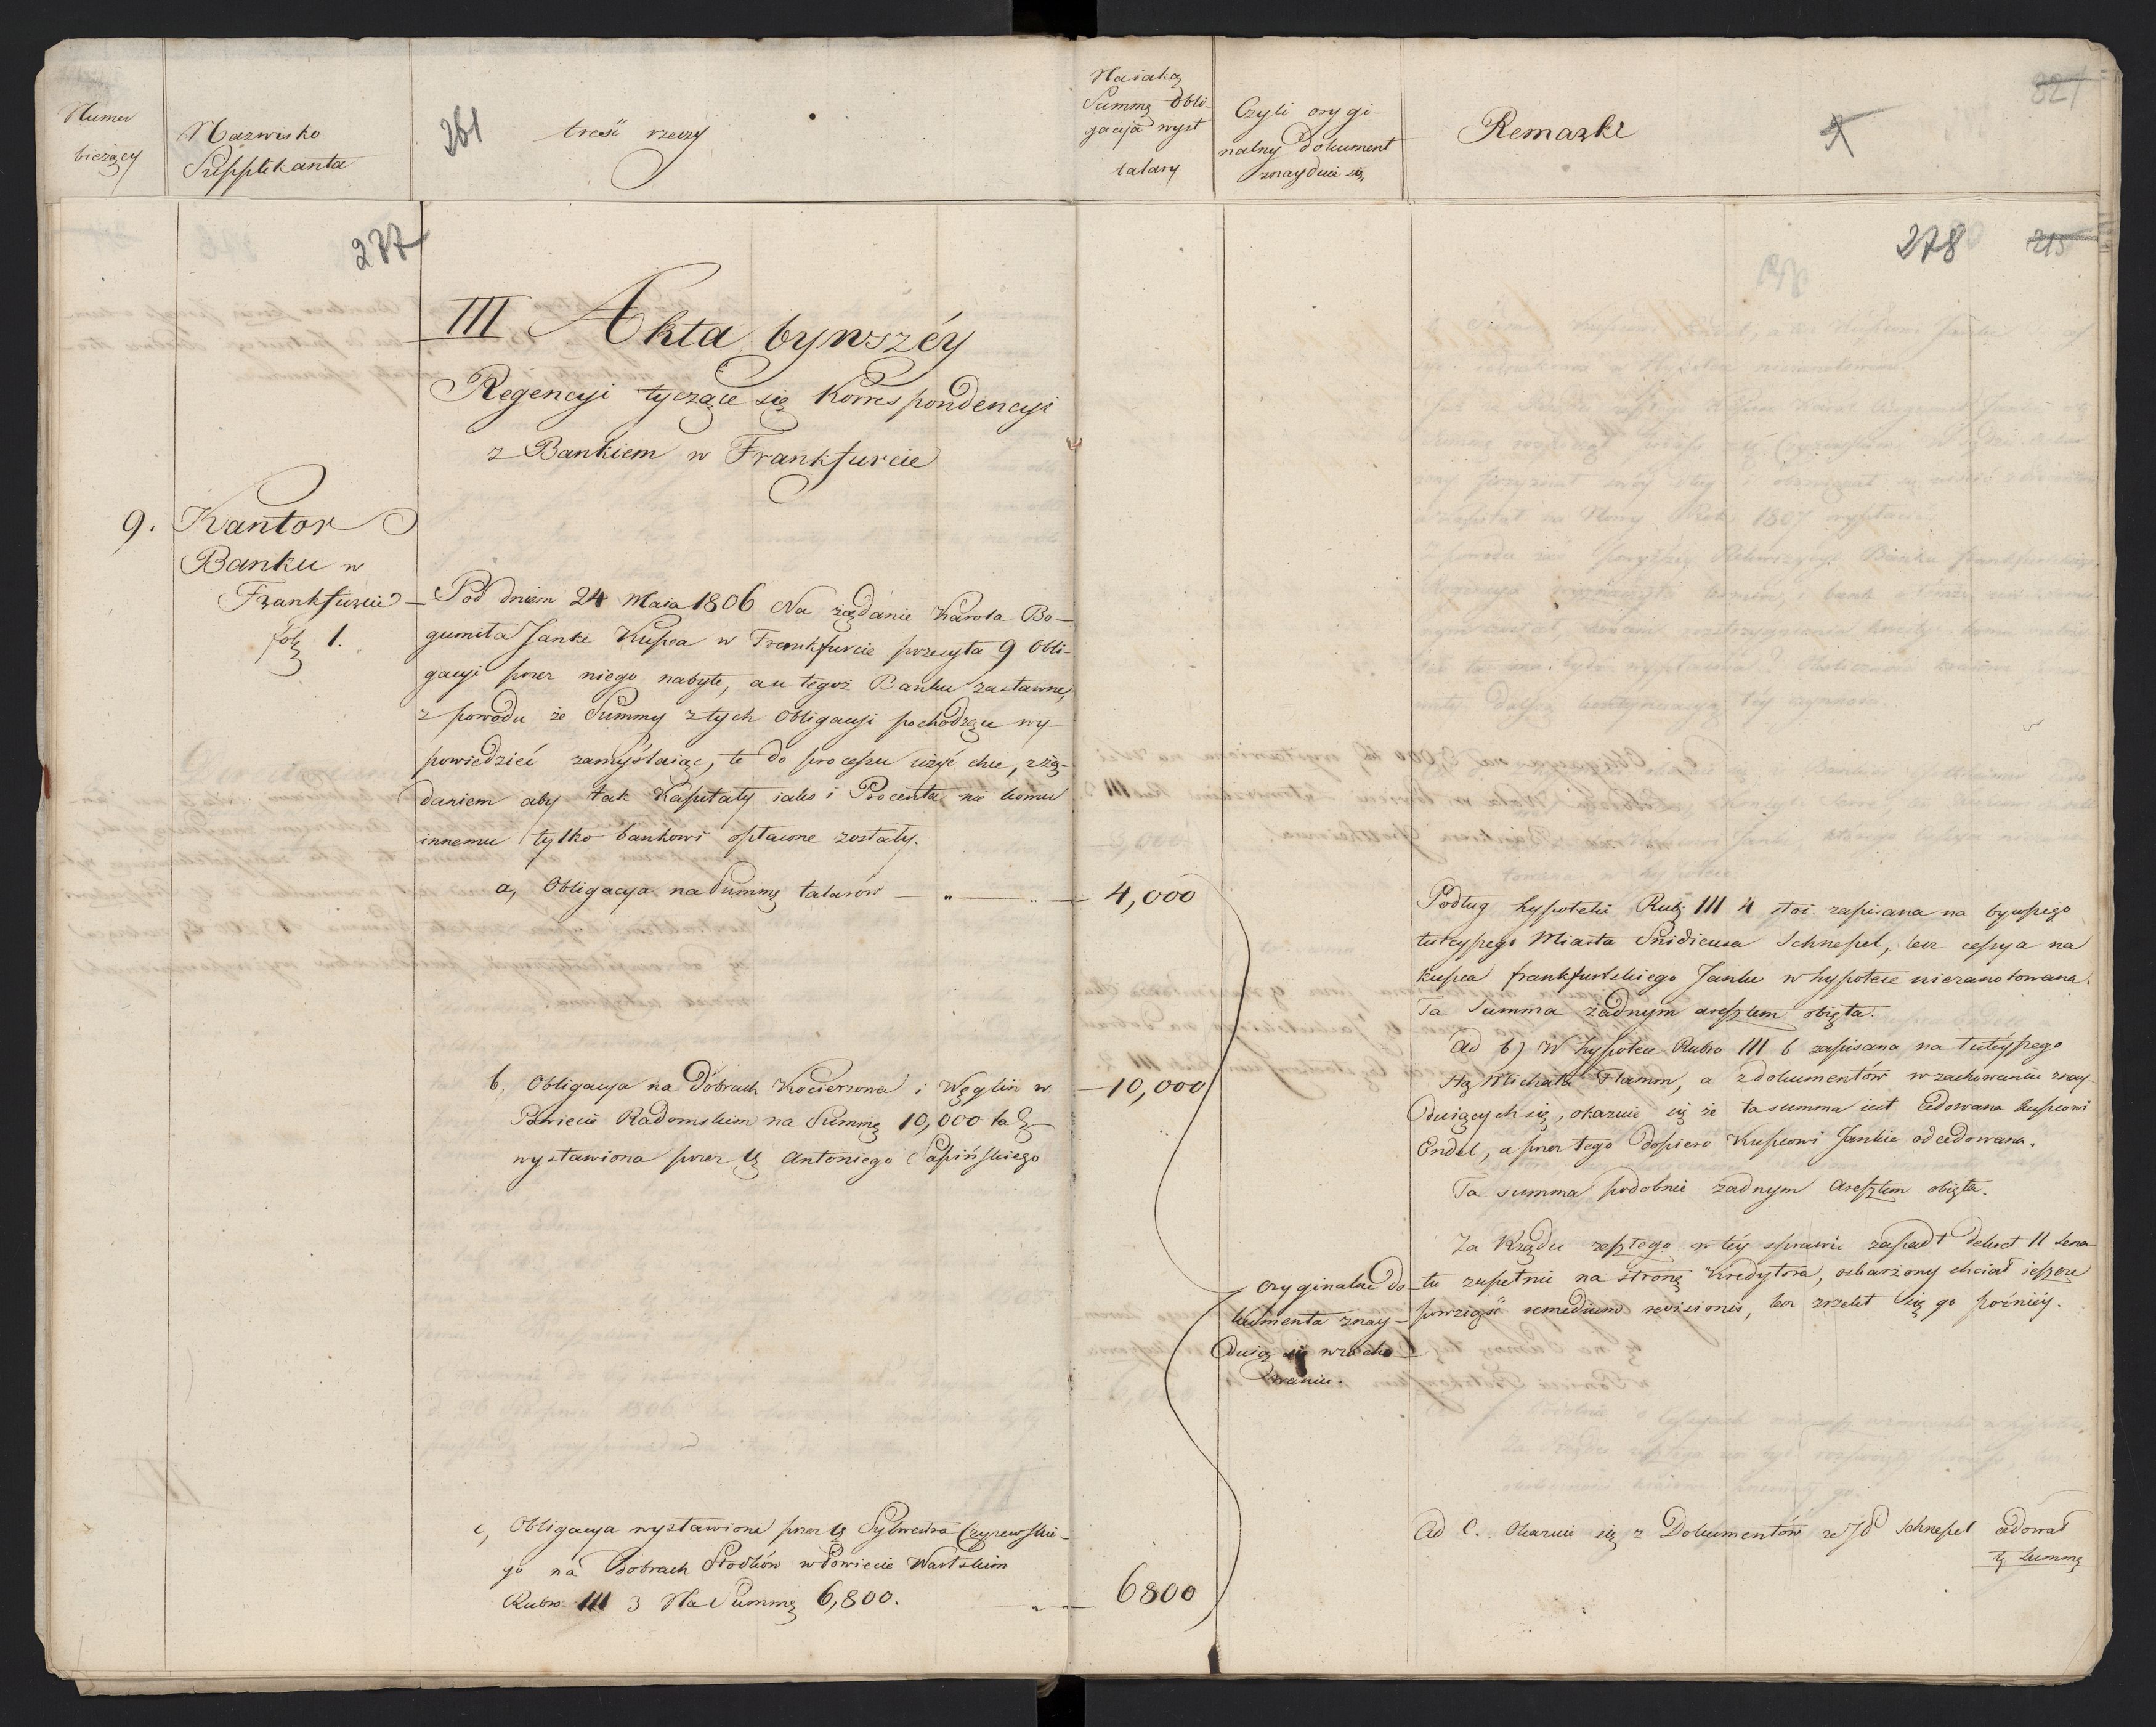 Numer
bieżący
Nazwisko
Supplikanta
261
treść rzeczy
Na iaką
Summę Obli-
gacya wyst
talary
Czyli orygi-
nalny dokument
znayduie się
Remarki
321
277
278
215
III Akta bywszéy
Regencyi tyczące się Korrespondencyi
z Bankiem w Frankfurcie
9. Kantor
Banku w
Frankfurcie
fol. 1.
Pod dniem 24 Maia 1806 Na żądanie Karola Bo-
gumiła Janke Kupca w Frankfurcie przesyła 9 Obli-
gacyi przez niego nabyte, a u tegoż Banku zastawne,
z powodu że Summy z tych Obligacyi pochodzące wy-
powiedzieć zamyślaiąc, te do processu użyć chce, z żą-
daniem aby tak Kapitały iako i Procenta nie komu
innemu tylko bankowi opłacone zostały.
a, Obligacya na Summę talarów — „ — „ —
4,000
b, Obligacya na Dobrach Kocierzowa i Węglin w
Powiecie Radomskim na Summę 10,000 tal
wystawiona przez Antoniego Sapińskiego
10,000
c, Obligacya wystawiona przez Sylwestra Czyzewskie-
go na Dobrach Stodków w Powiecie Wartskim
Rubro III 3 Na Summę 6,800.
6800
Oryginalne do-
kumenta znay-
duią się w zacho-
waniu.
Podług hypoteki Rub III 4 stoi zapisana na bywszego
tuteyszego Miasta Sindicusa Schnepel, lecz cessya na
kupca frankfurtskiego Janke w hypotece niezanotowana.
Ta Summa żadnym aresztem obięta.
Ad b) W hypotece Rubro III 6 zapisana na tuteyszego
Michała Flamm, a z dokumentów w zachowaniu znay-
duiących się, okazuie się że ta summa iest Cedowana kupcowi
Endel, a przez tego dopiero Kupcowi Janke odcedowana.
Ta summa podobnie żadnym Aresztem obięta.
Za Rządu zeszłego w téy sprawie zapadł dekret II Sena-
tu zupełnie na stronę Kredytora, oskarżony chciał ieszcze
powziąść remedium revisionis, lecz zrzekł się go poźniéy.
Ad C. Okazuie się z Dokumentów że Schnepel cedował
tę Summę